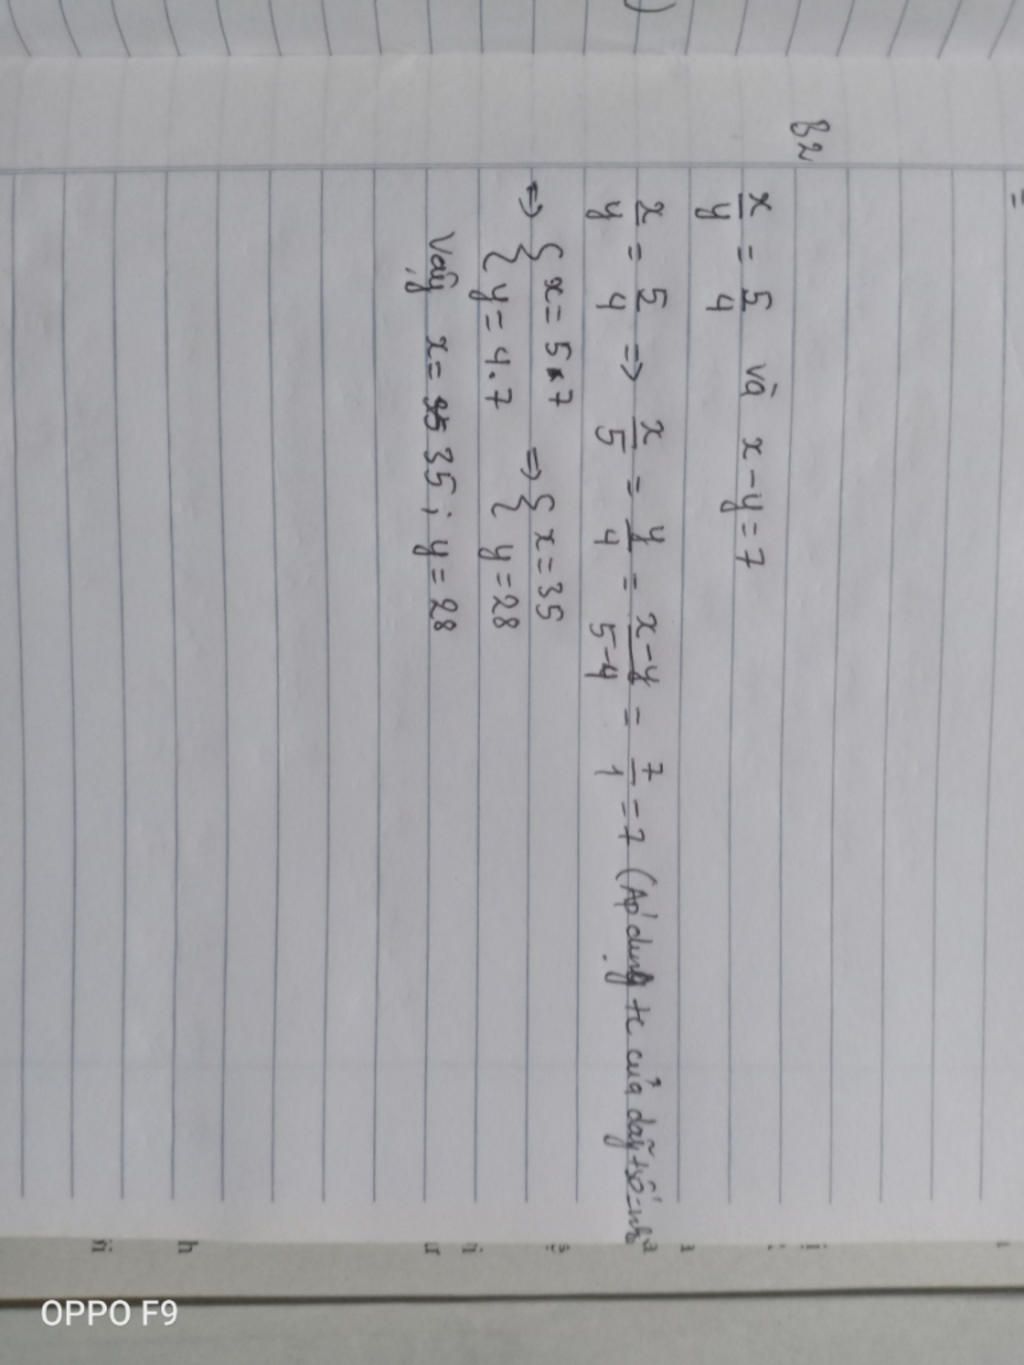 B2
x/y = 5/4 và x - y = 7
x/y = 5/4 => x/5 = y/4 = x-y/5-4 = 7/1 = 7 (Áp dụng tc của dãy tsố = nhau
=> { x = 5 . 7 => { x = 35
{ y = 4 . 7 { y = 28
Vậy x = 35 ; y = 28
OPPO F9